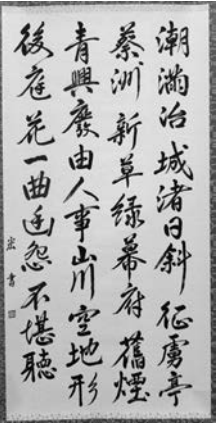 潮滿冶城渚日斜征虜亭
蔡洲新草緑幕府舊煙
青興廢由人事山川空地形
後庭花一曲幽怨不堪聽
宏書